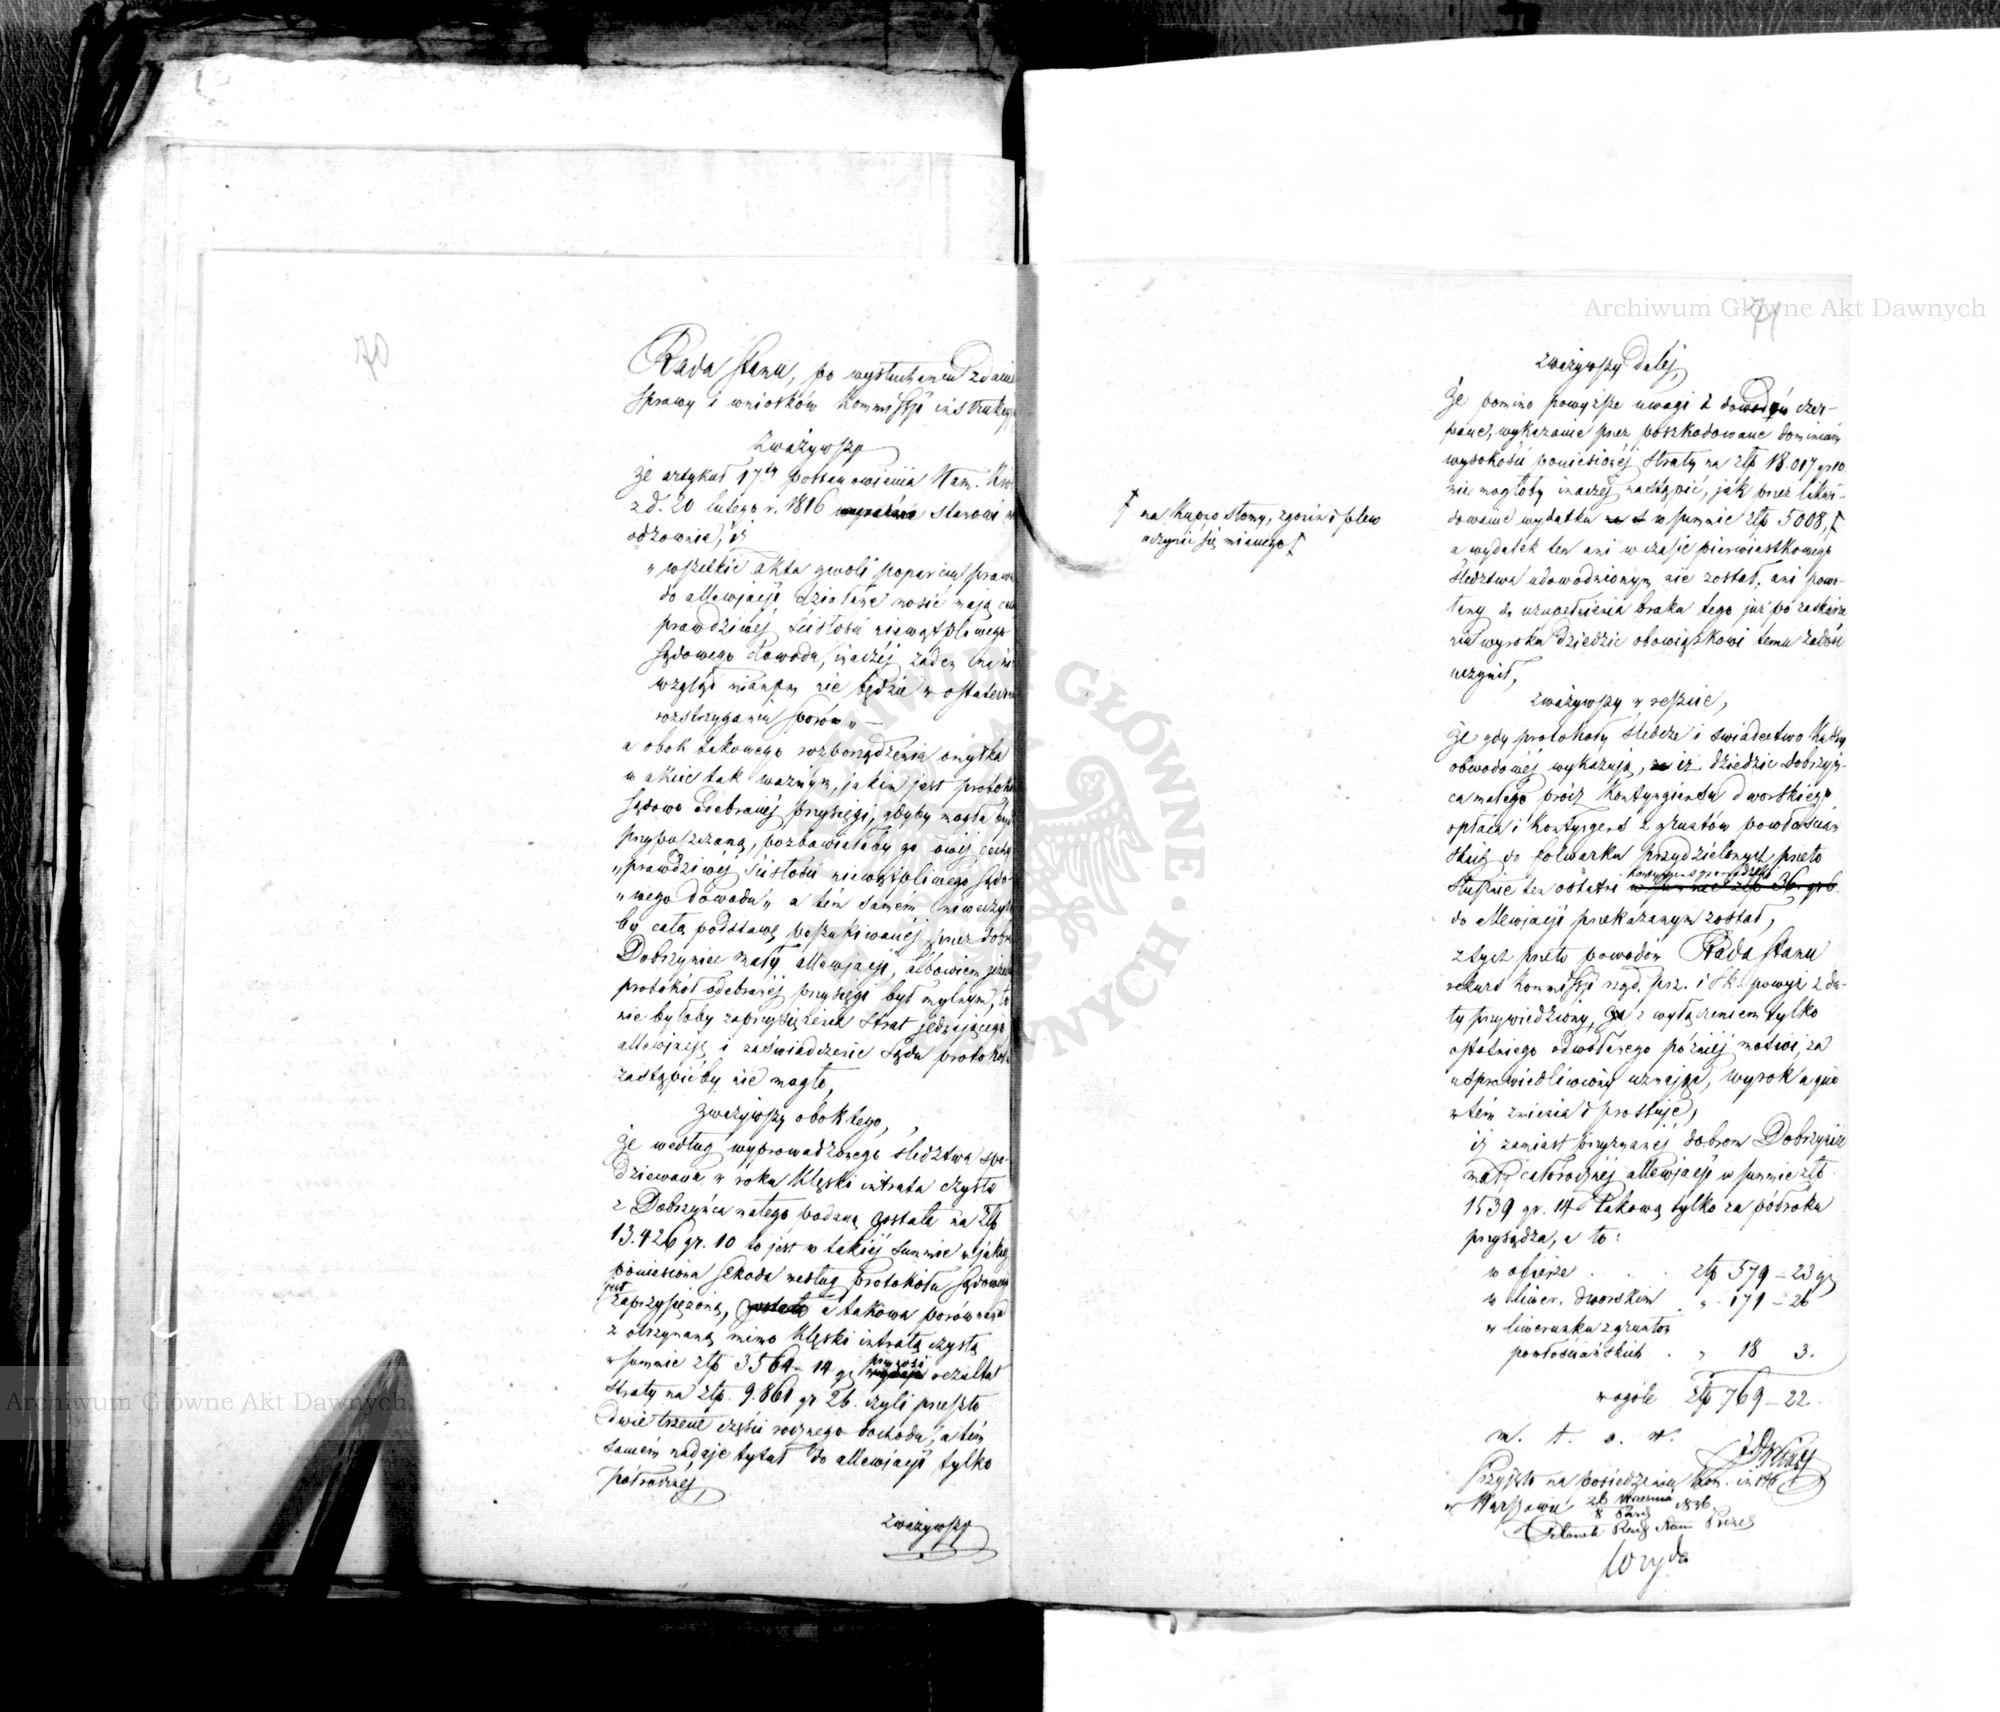 70
Rada Stanu, po wysłuchaniu zdania
sprawy i wniosków Kommissji instrukcyj
Zważywszy
że artykuł 17ty postanowienia Nam. Kró
z d. 20 lutego r. 1816 stanowi
odzownie, iż
„wszelkie akta gwoli poparcia prawa
do allewjacji działane nosić mają cechę
prawdziwej ścisłości niewątpliwego
sądowego dowodu, inaczej żaden na nie
wzgląd mianym nie będzie w ostateczném
rozstrzyganiu sporów„ —
a obok takowego rozporządzenia omyłka
w akcie tak ważnym, jakim jest protokół
sądowo odebranej przysięgi, gdyby mogła być
przypuszczaną, pozbawiałaby go owej cechy
„prawdziwej ścisłości niewątpliwego sądo-
„wego dowodu„ a tém samém niweczyła
by całą podstawę poszukiwanej przez dobra
Dobrzyniec mały allewjacji, albowiem jeżeli
protokół odebranej przysięgi był mylnym, to
nie byłoby zaprzysiężenia strat jedynającego
allewjację i zaświadczenie Sądu protokołu
zastąpićby nie mogło,
Zważywszy obok tego,
że według wyprowadzonego śledztwa spo-
dziewana w roku klęski intrata czysta
z Dobrzyńca małego podaną została na złp
13.426 gr. 10 to jest w takiéj summie w jakiej
poniesiona szkoda według protokółu sądowego
jest
zaprzysiężoną, została a takowa porównana
z otrzymaną mimo klęski intratą czystą
w summie złp 3564 – 14 gr przynosi rezultat
straty na złp. 9.861 gr 26. czyli przeszło
dwie trzecie części rocznego dochodu, a tém
samém nadaje tytuł do allewjacji tylko
półrocznej,
zważywszy
71
Zważywszy daléj,
że pomimo powyższe uwagi z dowodów czer-
pane, wykazanie przez poszkodowane dominium
wysokości poniesionéj straty na złp 18.017 gr 10
nie mogłoby inaczéj nastąpić, jak przez likwi-
dowanie wydatku w summie złp 5008, †
† na kupno słomy, zgonin i plew
uczynić się mianego †
a wydatek ten ani w czasie pierwiastkowego
śledztwa udowodnionym nie został, ani powo-
łany do uzupełnienia braku tego już po zaskarże
niu wyroku dziedzic obowiązkowi temu zadość
uczynił,
zważywszy w reszcie,
że gdy protokoły śledcze i świadectwo Kassy
obwodowéj wykazują, iż dziedzic Dobrzyń-
ca małego prócz kontyngensu dworskiego
opłaca i kontyngens z gruntów powłościań
skich do folwarku przydzielonych przeto
kontyngens gromadzki
słusznie ten ostatni w summie złp 36 gr 6
do allewjacji przekazanym został,
z tych przeto powodów Rada Stanu
rekurs Kommissji rząd. prz. i Sk. powyż z da-
ty przywiedziony, z wyłączeniem tylko
ostatniego odwołanego późniéj motivi, za
usprawiedliwiony uznając, wyrok a quo
w tém zmienia i prostuje,
iż zamiast przyznanéj dobrom Dobrzyniec
mały całorocznéj allewjacji w summie złp
1539 gr. 14 takową tylko za półroku
przysądza, a to:
w ofierze . . . złp 579 – 23 gr
w liwer. dworskim „ 171 – 26
w liwerunku z gruntów
powłościańskich . „ 18 3.
w ogóle złp 769 – 22.
m. t. o. w.
Przyjęto na posiedzeniu Kom. inst.
w Warszawie 26 Września / 8 Paźd. 1836.
Członek Rady Stanu Prezes
Woyda